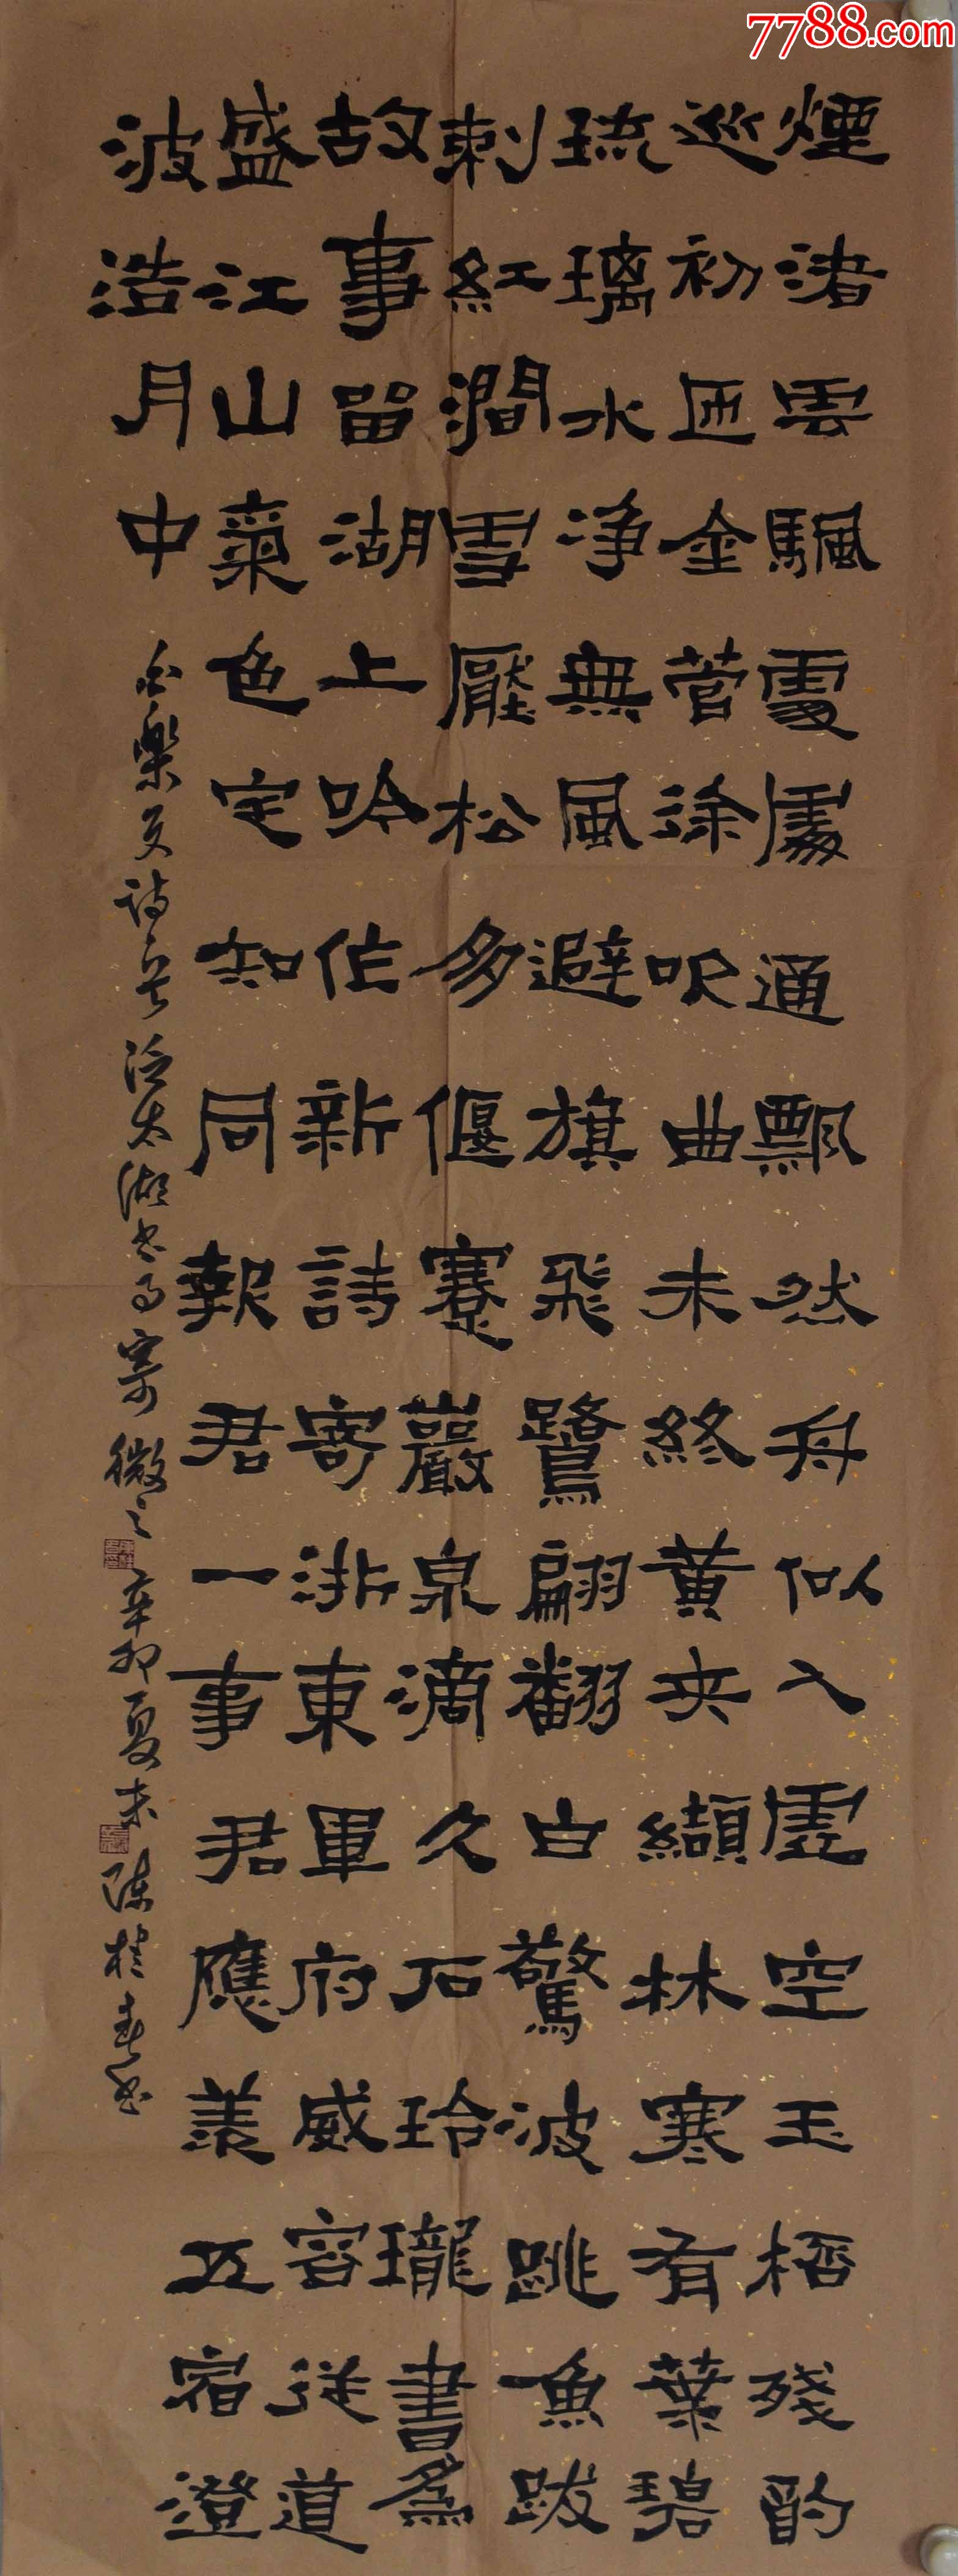 煙渚雲颿處處通飄然舟似入虛空玉桮殘酌
巡初匝金菅徐吹曲未終黃夾纈林寒有葉碧
琉璃水淨無風避旗飛鷺翩翻白驚波跳魚跋
刺紅澗雪壓松多偃蹇巖泉滴久石玲瓏書為
故事留湖上吟作新詩寄浙東軍府威容從道
盛江山氣色定知同報君一事君應羨五宿澄
波浩月中
白樂天詩泛太湖書事寄微之辛卯夏末陳桂春書
7788.com